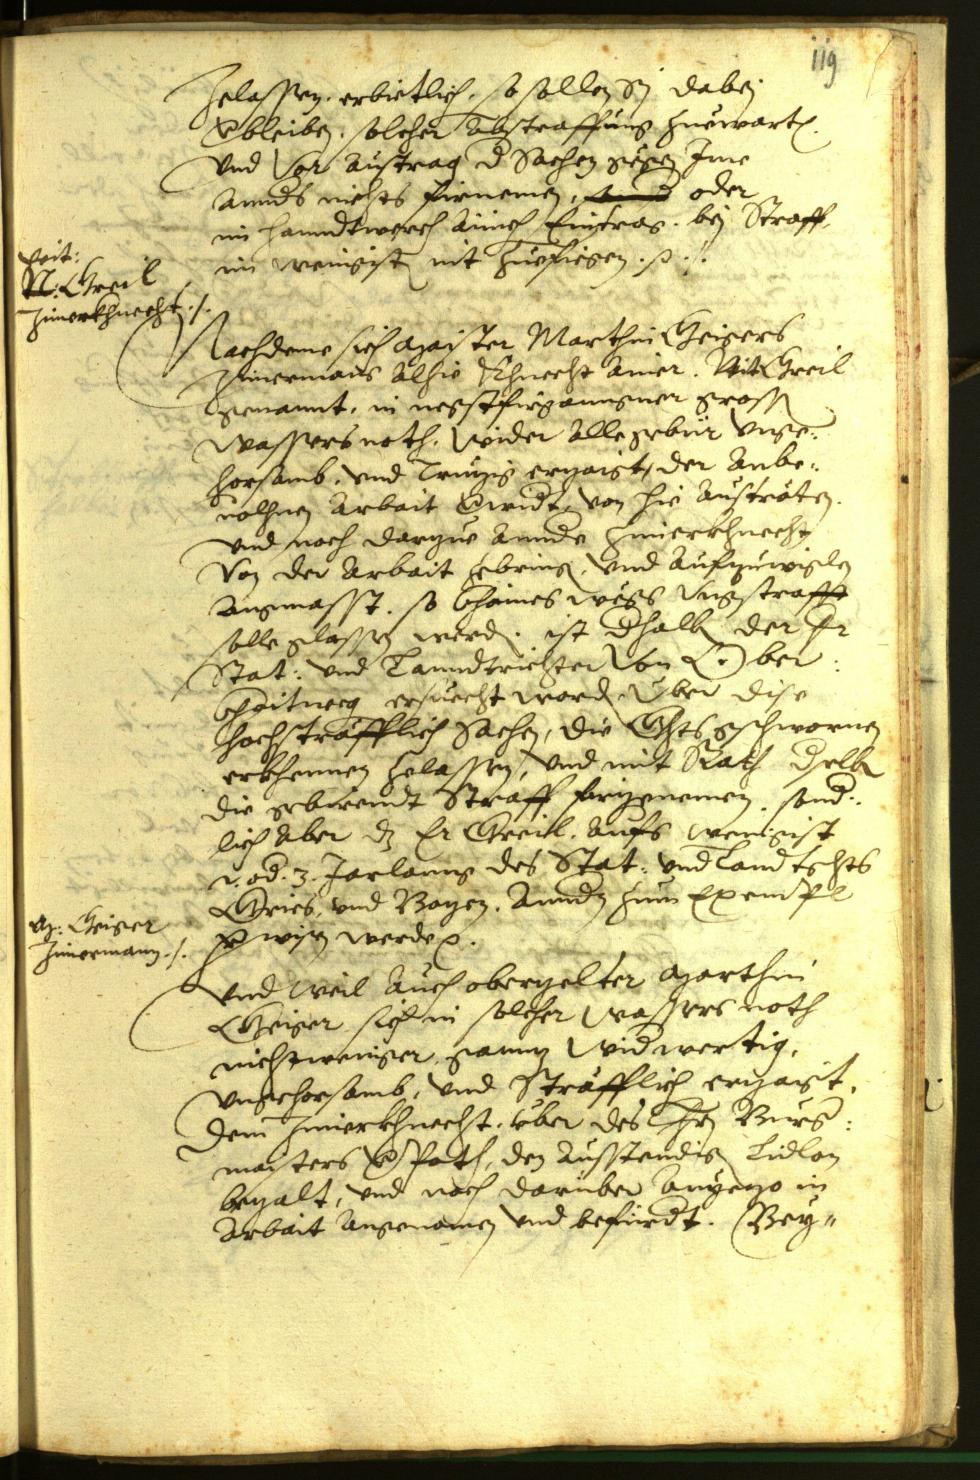 119
zelassen, erbietlich, so sollen Sy dabej
verbleiben, solcher Abstraffung zuewarten,
Und Vor Austrag der Sachen gegen Ime
annders nichts fürnemen, oder
im hanndtwerch ainich Eintrag, bej Straff,
im wenigisten nit zuefiegen ./.
Veit:
N: Greil
Zimerkhnecht ./.
Nachdeme sich Maister Marthin Geigers
Zimermans alhie Khnecht ainer, Veit Greil
genannt, in negstfirganngner gross
wassersnoth, wider alle gebür unge:
horsamb, und Truzig erzaigt, der anbe:
volhnen Arbait von hie austräten,
und noch darzue annde Zimerkhnecht
von der Arbait zebring, und aufzuwiglen
angemasst, so khaines weegs Ungestrafft
solle glassen werden, ist dhalben der Hr
Stat: und Lanndtrichter von Ober:
khaitweg ersuecht worden Über dise
hochsträfflich Sachen, die Ghtsgschwornen
erkhennen zelassen, und mit Rath dselben
die gebürendt Straff firzenemen, sond:
lich aber dz Er Greil, aufs wenigist
2. od. 3. Jarlanng des Stat: und Landtghts
Gries, und Bozen, Anndn zum Exempl
verwisen werde.
M: Geiger
Zimermann ./.
Und weil auch oberzelter Marthin
Geiger sich in solcher Wassersnoth
nichtweniger ganntz Widwertig,
ungehorsamb, und Sträfflich erzaigt,
dem Zimerkhnecht, über des Hrn Burg:
maisters verpoth, den ausstendig Lidlon
bezalt, und noch darüber anyezo in
Arbait angenomen und befürdt. Bey"